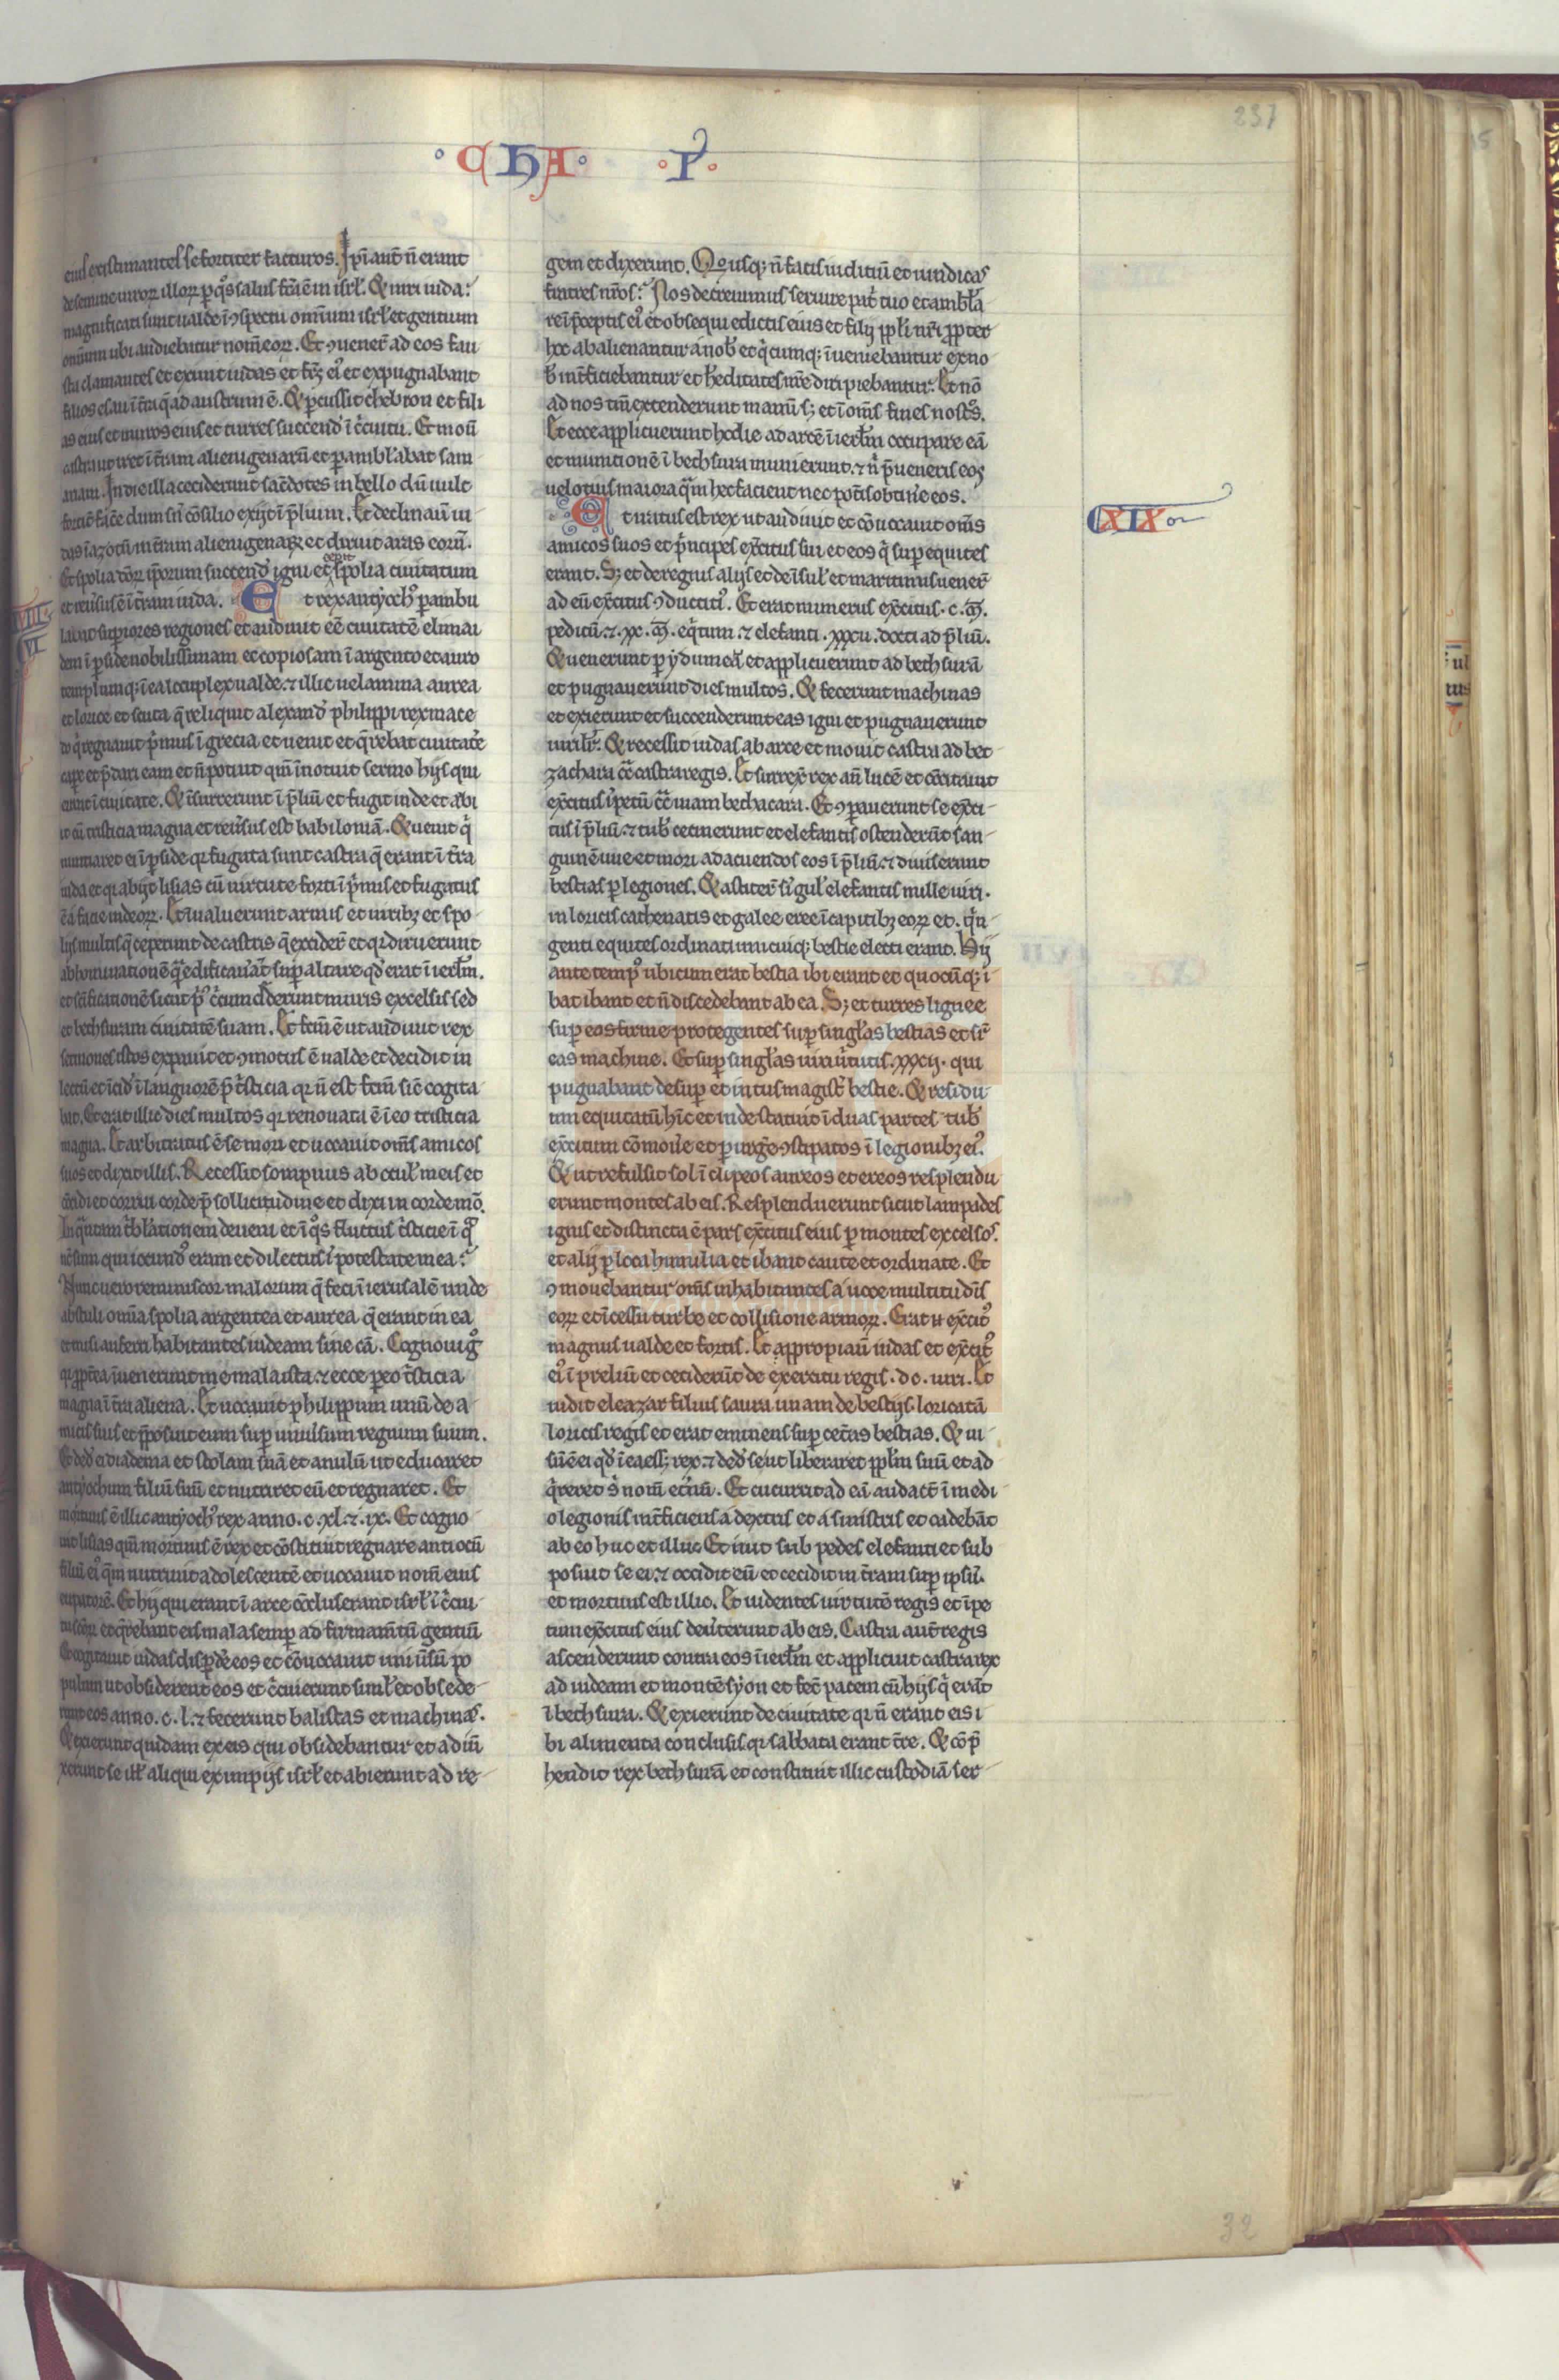 237
CHA P
eius existimantes se fortiter facturos. Ipi aut̄ n̄ erant
de semine uiroꝝ illoꝝ p q̊s salus fc̄a ē in isrl̓. Et uiri iuda:
magnificati sunt ualde ī ꝯspectu omnium isrl̓ et gentium
omnium ubi audiebatur nom̄ eoꝝ. Et ꝯuener̄ ad eos fau
sta clamantes et exiuit iudas et fr̄s ei᷒ et expugnabant
filios esau ī t̄ra q̄ ad austrum ē. Et ꝑcussit chebron et fili
as eius et muros eius et turres succend̓ ī c̓cuitu. Et mou̅
castra ut iret ī t̄ram alienigenarū et ꝑambl̓abat sam
ariam. In die illa ceciderunt sac̄dotes in bello dū uult
fortit̄ fac̄e dum sn̄ cōsilio exijt ī p̄lium. Et declinauit iu
das ī azotū in t̄ram alienigenaꝝ et diruit aras eoꝝ.
Et spolia deoꝝ ip̄orum succend̓ igni et cepit spolia ciuitatum
et reu̓sus ē ī t̄ram iuda. Et rex antyoch᷒ ꝑambu
VIII
VI
labat supiores regiones et audiuit eē ciuitatē elimai
dem ī pside nobilissimam et copiosam ī argento et auro
templumq; ī ea locuplex ualde ⁊ illic uelamina aurea
et lorice et scuta q̄ reliquit alexand̓ philippi rex mace
do q̓ regnauit p̓mus ī grecia et uenit et q̄rebat ciuitatē
cape et p̄dari eam et n̄ potuit qm̄ īnotuit sermo hijs qui
erant ī ciuitate. Et īsurrexerunt ī p̄liū et fugit inde et abi
it cū tristicia magna et reu̓sus est babiloniā. Et uenit q̓
nuntiaret ei ī pside qꝛ fugata sunt castra q̄ erant ī t̄ra
iuda et qꝛ abijt lisias cū uirtute forti ī p̓mis et fugatus
ē a facie iudeoꝝ. Et īualuerunt armis et uirib; et spo
lijs multis q̄ ceperunt de castris q̄ excider̄ et qꝛ diruerunt
abhominationē quā edificauāt sup altare qd̓ erat ī ierl̄m.
et sc̄ificationē sicut p̓᷒ c̓cumdederunt muris excelsis sed
et bethsuram ciuitatē suam. Et fc̄m ē ut audiuit rex
sermones istos expauit et ꝯmotus ē ualde et decidit in
lectū et īcid̓ ī languorē p̄ t̓sticia qꝛ n̄ est fc̄m sic̄ cogita
bat. Et erat illic dies multos qꝛ renouata ē ī eo tristicia
magna. Et arbitratus ē se mori et uocauit om̄s amicos
suos et dixit illis. Recessit sompnus ab ocul̓ meis et
c̄cidi et corrui corde p̄ sollicitudine et dixi in corde mō.
In q̄ntam t̓bl̓ationem deueni et ī q̊s fluctus t̓sticie ī q̓
nc̄ sum qui iocund᷒ eram et dilectus ī potestate mea:
Nunc uero reminiscor malorum q̄ feci ī ierusalē unde
abstuli omīa spolia argentea et aurea q̄ erant in ea
et misi auferri habitantes iudeam sine cā. Cognoui g̊
qꝛ ꝓpt̄ea īuenerunt me mala ista ⁊ ecce peo t̓sticia
magna ī t̄ra aliena. Et uocauit philippum unū de a
micis suis et p̄posuit eum sup uniu̓sum regnum suum.
Et ded̓ ei diadema et stolam suā et anulū ut educaret
antyochum filiū suū et nutriret eū et regnaret. Et
mortuus ē illic antyoch᷒ rex anno. c. xl. ⁊. ix. Et cogno
uit lisias qm̄ mortuus ē rex et cōstituit regnare antiocū
filiū ei᷒ q̄m nutriuit adolescentē et uocauit nom̄ eius
eupatorē. Et hij qui erant ī arce cōcluserant isrl̓ ī c̓cui
tu sc̄oꝝ et q̄rebant eis mala semp ad firmam̄tū gentiū
Et cogitauit iudas dispd̓e eos et cōuocauit uniu̓sū po
pulum ut obsiderent eos et ꝯuenerunt simł et obsede
runt eos anno. c. l. ⁊ fecerunt balistas et machinas.
Et exierunt quidam ex eis qui obsidebantur et adiū
xerunt se illis aliqui ex impijs isrl̓ et abierunt ad re
gem et dixerunt. Quousq; n̄ facis iuditiū et uindicas
fratres nr̄os: Nos decreuimus seruire patri tuo et ambl̓a
re ī p̄ceptis ei᷒ et obsequi edictis eius et filij ppl̓i nr̄i ꝓpter
hoc abalienantur a nob̓ et q̓cumq; īueniebantur ex no
b̓ int̄ficiebantur et h̓editates nr̄e diripiebantur. Et nō
ad nos tm̄ extenderunt manū s; et ī om̄s fines nost̊s.
Et ecce applicuerunt hodie ad arcē ī ierl̄m occupare eā
et munitionē ī bethsura munierunt. ⁊ n̓ p̄ueneris eos
uelotius maiora q̄m hec facient nec pot̓is obtine̓ eos.
Et iratus est rex ut audiuit et cōuocauit om̄s
CXIX
amicos suos et p̓ncipes exc̄itus sui et eos q̓ sup equites
erant. S; et de regnis alijs et de īsul̓ et maritimis uener̄
ad eū exc̄itus ꝯductici᷒. Et erat numerus exc̄itus. c. m̄.
peditū. ⁊. xx. m̄. eq̓tum. ⁊ elefanti. xxxii. docti ad p̄liū.
Et uenerunt p ydumeā et applicuerunt ad bethsurā
et pugnauerunt dies multos. Et fecerunt machinas
et exierunt et succenderunt eas igni et pugnauerunt
uiril̓r. Et recessit iudas ab arce et mouit castra ad bet
zachara c̄ castra regis. Et surrex̄ rex an̄ lucē et cōcitauit
exc̄itus īpetū c̄ uiam bethacara. Et ꝯpauerunt se exc̄i
tus ī p̄liū ⁊ tub̓ cecinerunt et elefantis ostenderūt san
guinē uue et mori ad acuendos eos ī p̄liū. ⁊ diuiserunt
bestias p legiones. Et astiter̄ sīgul̓ elefantis mille uiri.
in loricis cathenatis et galee eree ī capitib; eoꝝ et. q̓n
genti equites ordinati unicuiq; bestie electi erant. Hij
ante temp᷒ ubicum erat bestia ibi erant et quocūq; i
bat ibant et n̄ discedebant ab ea. S; et turres lignee
sup eos firme protegentes sup singl̓as bestias et sr̄
eas machine. Et sup singl̓as uiri u̓tutis. xxxij. qui
pugnabant desup et intus magist̄ bestie. Et residu
um equitatū hīc et inde statuit ī duas partes tub̓
exc̄itum cōmoue̓ et purge̓ ꝯstipatos ī legionib; ei᷒.
Et ut refulsit sol ī clipeos aureos et ereos resplendu
erunt montes ab eis. Resplenduerunt sicut lampades
ignis et distincta ē pars exc̄itus eius p montes excelso᷒.
et alij p loca humilia et ibant caute et ordinate. Et
ꝯmouebantur om̄s inhabitantes a uoce multitudīs
eoꝝ et īcessu turbe et collisione armoꝝ. Erat n̄ exc̄it᷒
magnus ualde et fortis. Et appropiau̅ iudas et exc̄it᷒
ei᷒ ī preliū et ceciderūt de exercitu regis. dc. uiri. Et
uidit eleazar filius saura unam de bestijs loricatā
loricis regis et erat eminens sup cet̄as bestias. Et ui
sū ē ei qd̓ ī ea ess; rex. ⁊ ded̓ se ut liberaret ppl̄m suū et ad
q̓reret s̓ nom̄ et̓nū. Et cucurrit ad eā audact̄ ī medi
o legionis int̄ficiens a dextris et a sinistris et cadebāt
ab eo huc et illuc. Et iuit sub pedes elefanti et sub
posuit se ei. ⁊ occidit eū et cecidit in t̄ram sup ipsū.
et mortuus est illic. Et uidentes uirtutē regis et īpe
tum exc̄itus eius deu̓terunt ab eis. Castra aut̄ regis
ascenderunt contra eos ī ierl̄m et applicuit castra rex
ad iudeam et montē syon et fec̄ pacem cū hijs q̓ erāt
ī bethsura. Et exierunt de ciuitate qꝛ n̄ erant eis i
bi alimenta conclusis qꝛ sabbata erant t̄re. Et cōp̄
hendit rex bethsurā et constituit illic custodiā ser
32